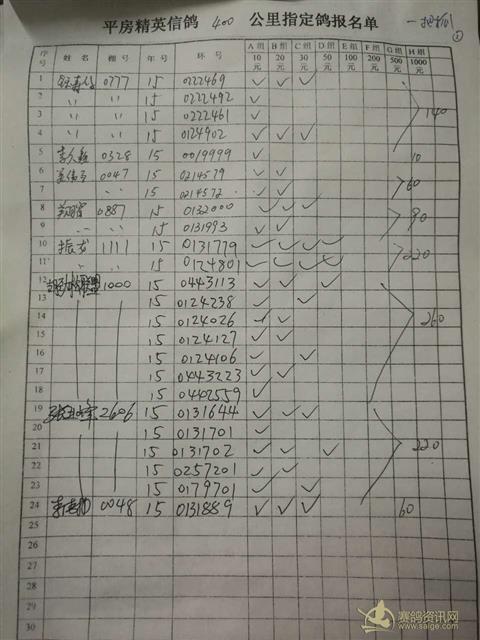 平房精英信鸽 400 公里指定鸽报名单
①
序号 姓名 棚号 年号 环号 A组10元 B组20元 C组30元 D组50元 E组100元 F组200元 G组500元 H组1000元
1 0777 15 0222469 ✓ ✓ ✓
2 〃 〃 15 0222492 ✓
3 〃 〃 15 0222461 ✓ 140
4 〃 〃 15 0124902 ✓ ✓ ✓
5 0328 15 0019999 ✓ 10
6 0047 15 0214579 ✓ ✓
7 〃 15 0214572 ✓ ✓ 60
8 0887 15 0132000 ✓ ✓ ✓
9 〃 15 0131993 ✓ ✓ 90
10 振龙 1111 15 0131779 ✓ ✓ ✓ ✓
11 〃 〃 15 0124801 ✓ ✓ ✓ ✓ 220
12 1000 15 0443113 ✓ ✓ ✓
13 15 0124238 ✓ ✓
14 15 0124026 ✓ ✓ 260
15 15 0124127 ✓ ✓
16 15 0124106 ✓ ✓
17 15 0443223 ✓ ✓
18 15 0442559 ✓
19 2606 15 0131644 ✓ ✓ ✓
20 15 0131701 ✓
21 15 0131702 ✓ ✓ ✓ 220
22 15 0257201 ✓ ✓
23 15 0179701 ✓ ✓
24 0048 15 0131889 ✓ ✓ ✓ 60
25
26
27
28
29
30
赛鸽资讯网
www.saige.com